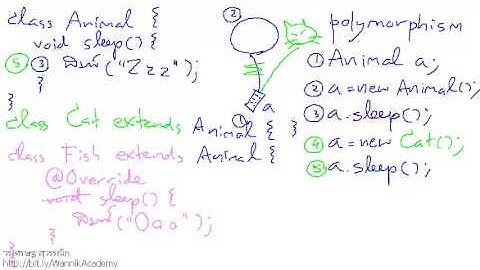 class Animal {
void sleep() {
⑤ ③ พิมพ์("Zzz");
}
}
class Cat extends Animal { }
class Fish extends Animal {
@Override
void sleep() {
พิมพ์("Ooo");
}
}
② 
① a
polymorphism
① Animal a;
② a = new Animal();
③ a.sleep();
④ a = new Cat();
⑤ a.sleep();
http://bit.ly/WannikAcademy